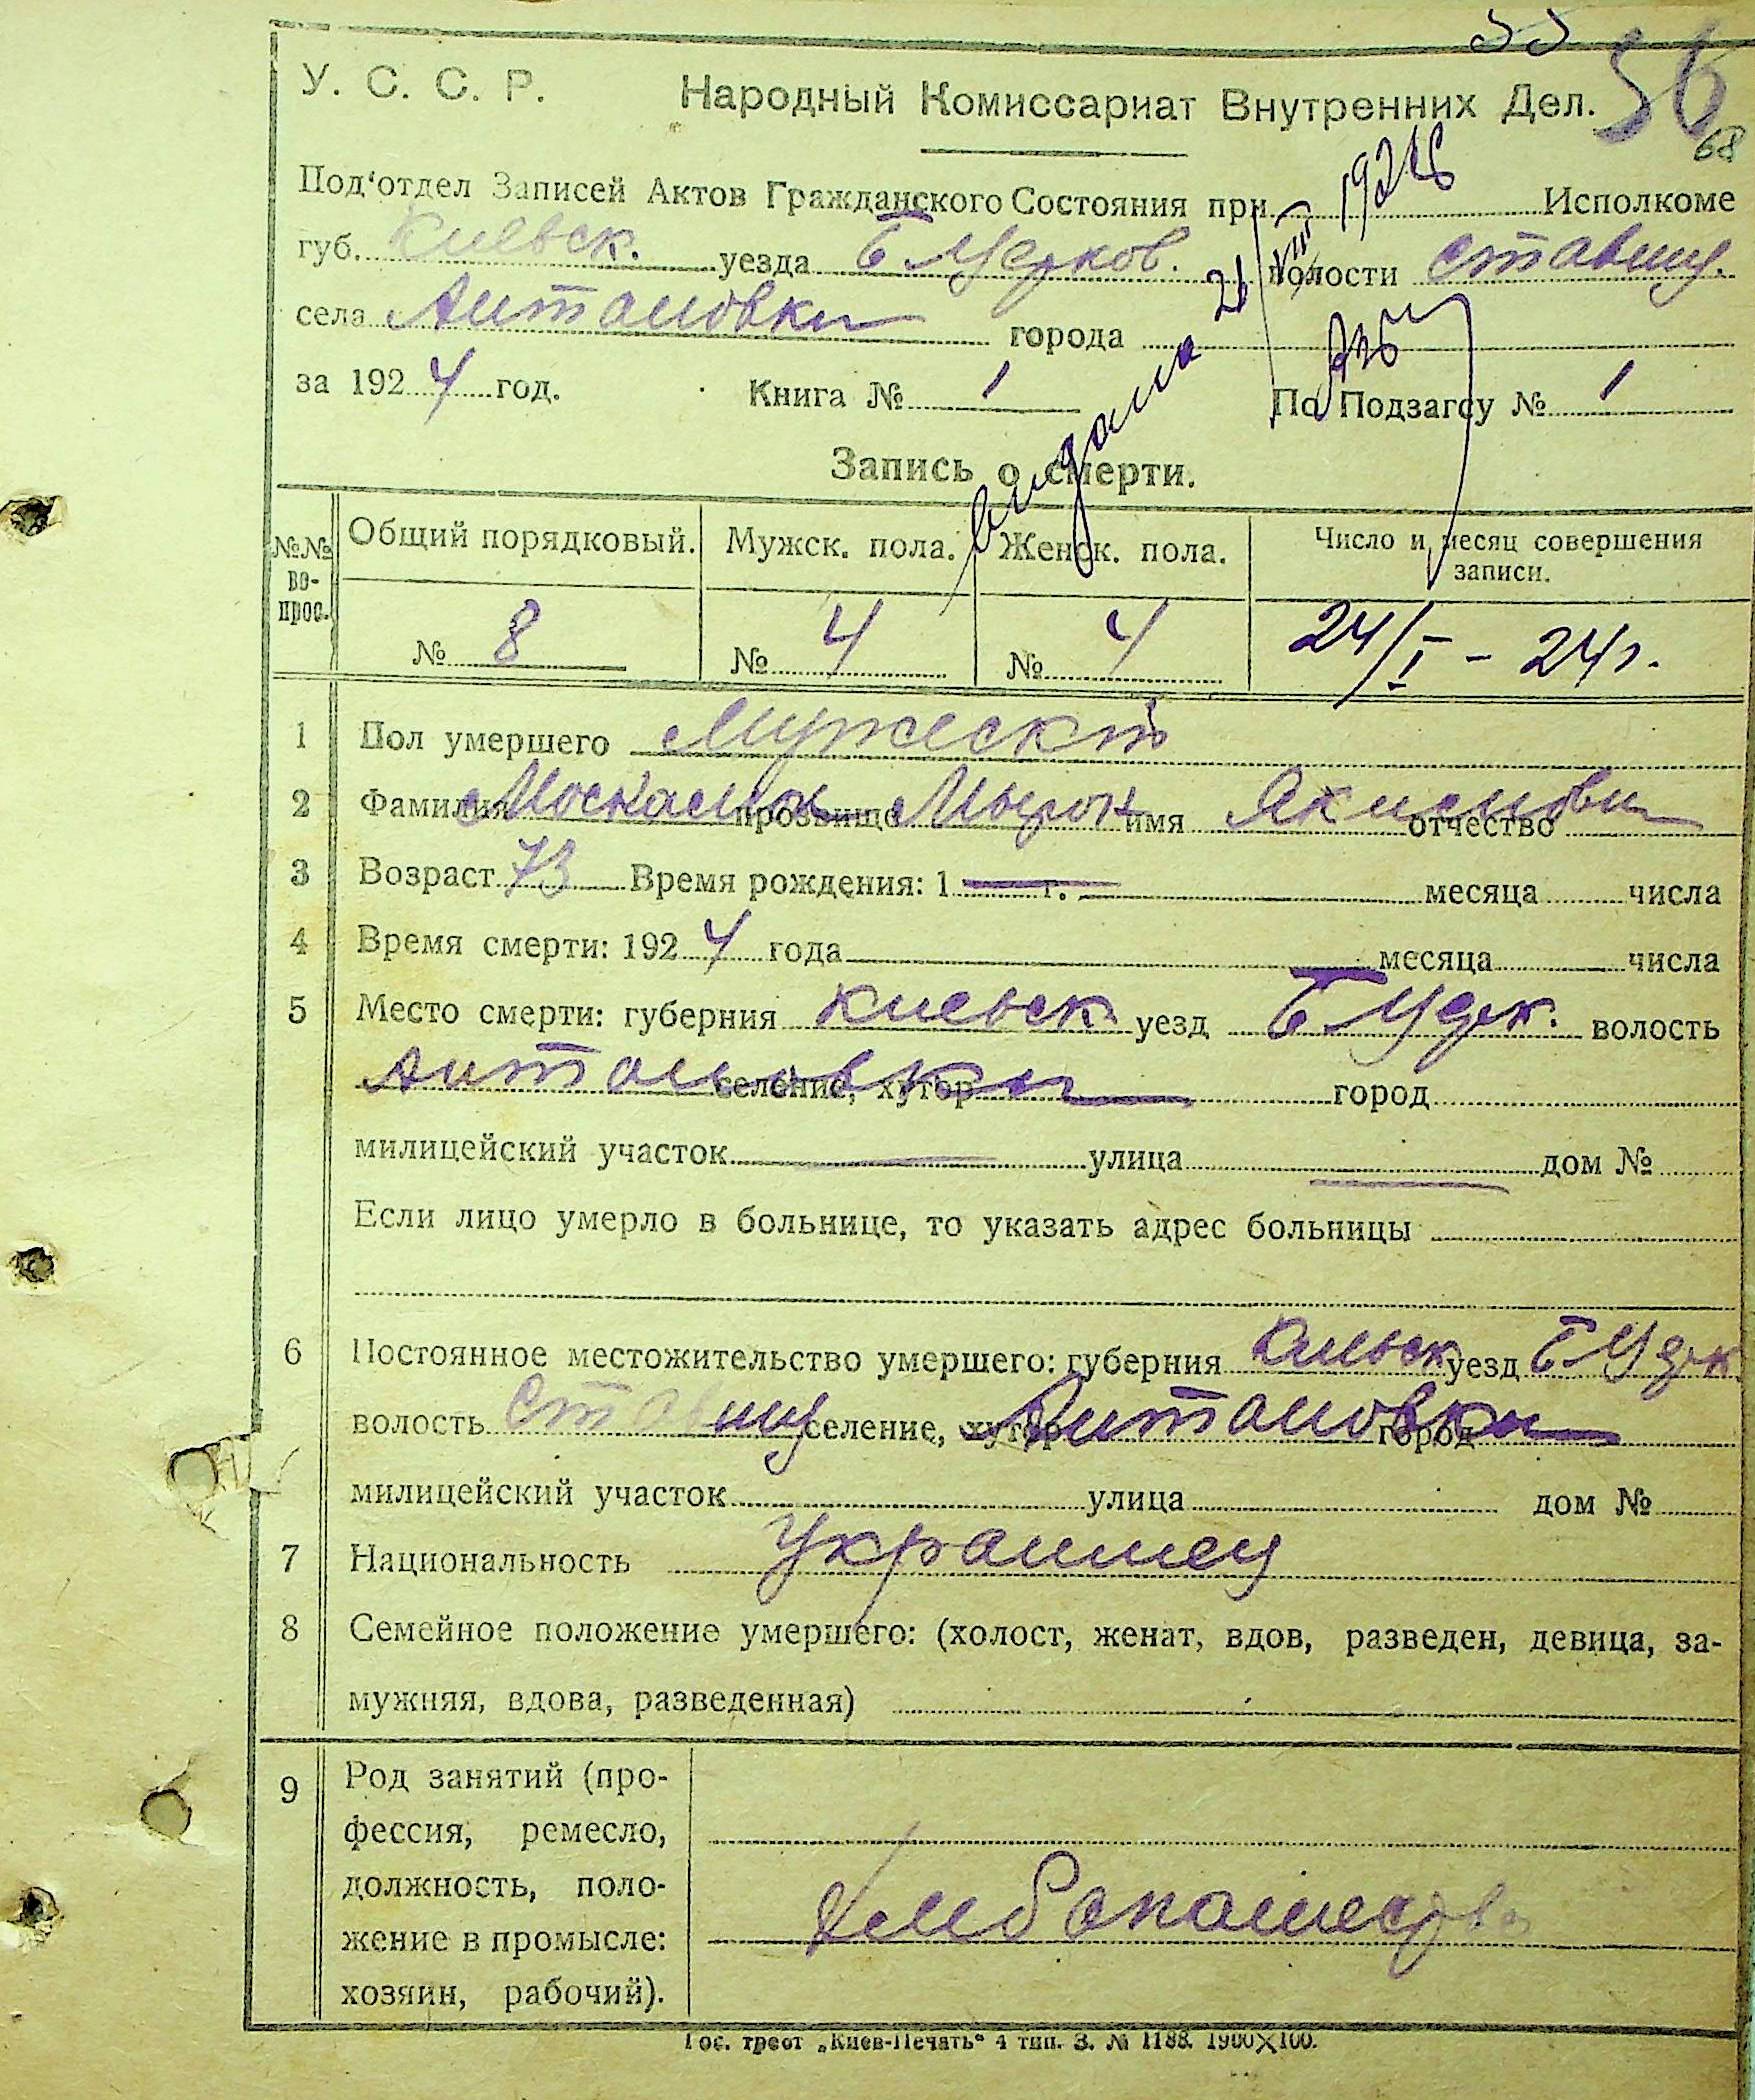 55
56
68
У. С. С. Р. Народный Комиссариат Внутренних Дел.
Под'отдел Записей Актов Гражданского Состояния при Исполкоме
губ. Киевск. уезда Б Церков. волости Ставищ.
села Антановки города
за 1924 год. Книга № 1 По Подзагсу № 1
видано 1926
Запись о смерти.
№№ во-прос. Общий порядковый. Мужск. пола. Женск. пола. Число и месяц совершения записи.
№ 8 № 4 № 4 24/I - 24 г.
1 Пол умершего Мужеский
2 Фамилия прозвище Мырон имя Якимови отчество
3 Возраст 73 Время рождения: 1 г. месяца числа
4 Время смерти: 1924 года месяца числа
5 Место смерти: губерния Киевск уезд Б Церк. волость
Антановки селение, хутор город
милицейский участок улица дом №
Если лицо умерло в больнице, то указать адрес больницы
6 Постоянное местожительство умершего: губерния Киевск уезд Б Церк
волость Ставищ селение, хутор Антановки город
милицейский участок улица дом №
7 Национальность Украинец
8 Семейное положение умершего: (холост, женат, вдов, разведен, девица, за-
мужняя, вдова, разведенная)
9 Род занятий (про-
фессия, ремесло,
должность, поло-
жение в промысле:
хозяин, рабочий).
Гос. трест „Киев-Печать" 4 тип. З. № 1188. 1900X100.